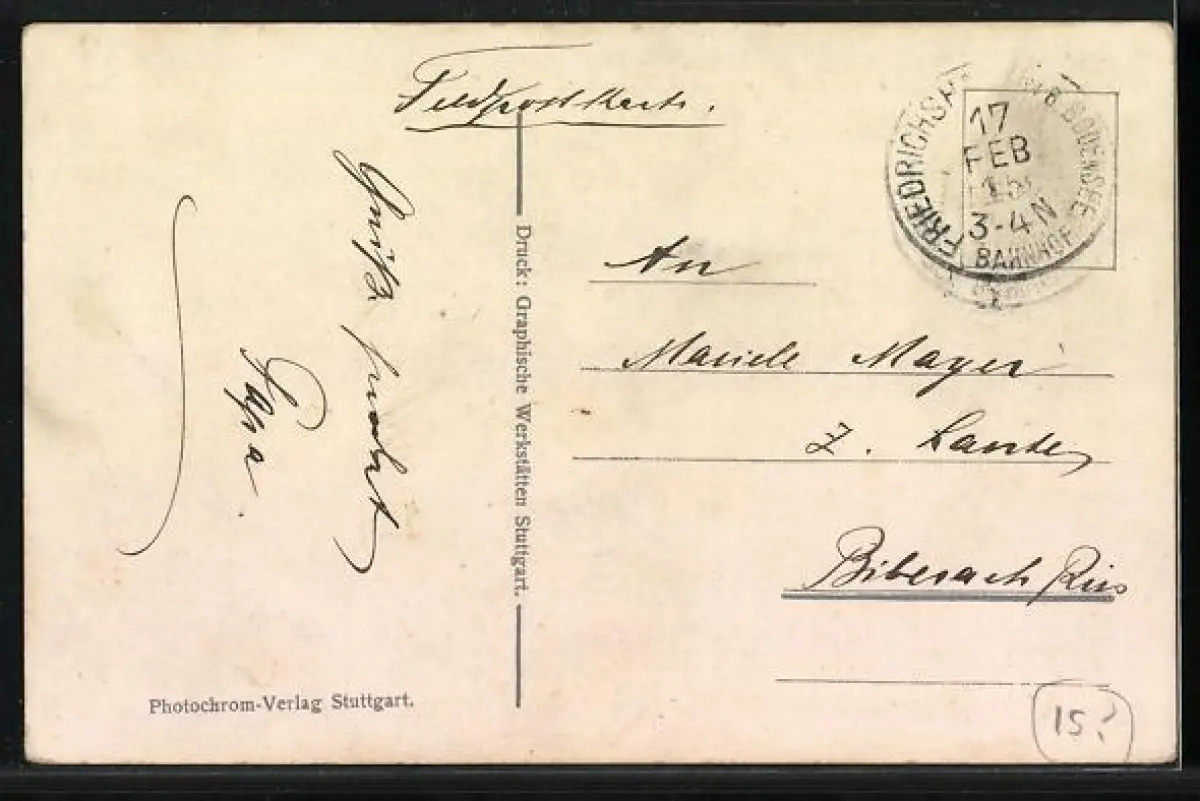 Feldpostkarte.
FRIEDRICHSHAFEN A. BODENSEE
17
FEB
15
3-4 N
BAHNHOF
Gruß
Papa.
Druck: Graphische Werkstätten Stuttgart.
An
Mariele Mayer
z.
Biberach Riss
Photochrom-Verlag Stuttgart.
15?